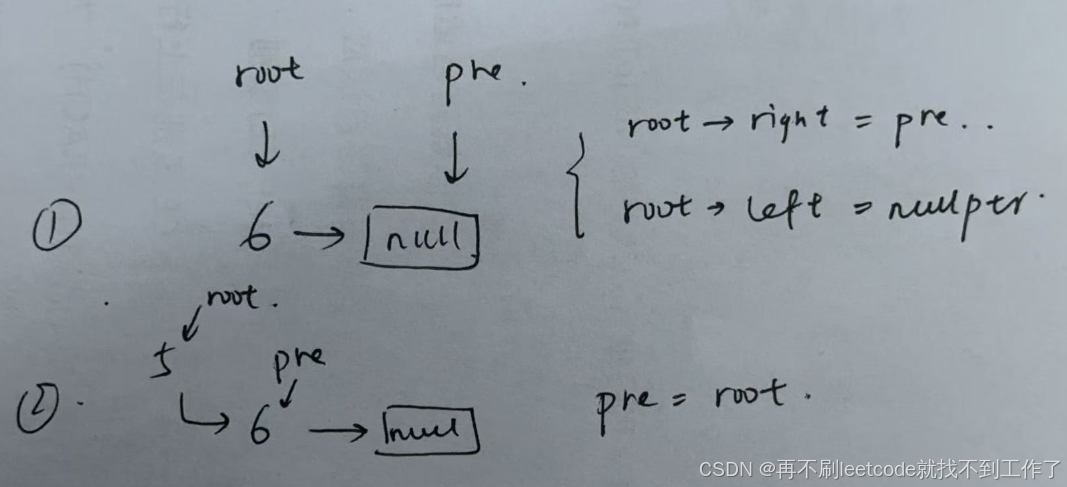 root pre.
root → right = pre..
① 6 → null
root → left = nullptr.
root.
5 pre
② . 6 → null
pre = root.
CSDN @再不刷leetcode就找不到工作了